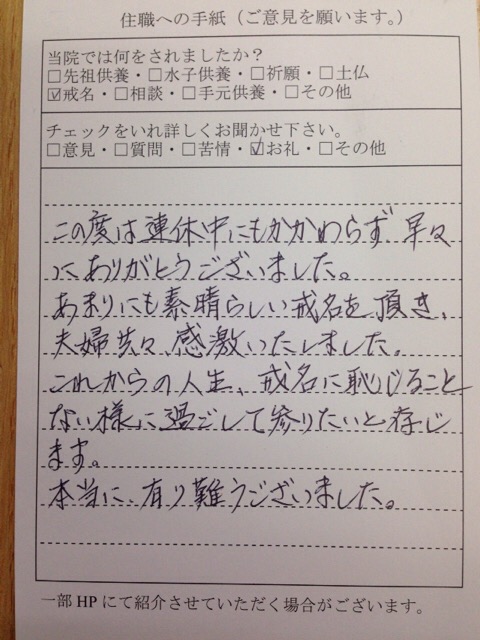 住職への手紙（ご意見を願います。）
当院では何をされましたか？
□先祖供養・□水子供養・□祈願・□土仏
☑戒名・□相談・□手元供養・□その他
チェックをいれ詳しくお聞かせ下さい。
□意見・□質問・□苦情・☑お礼・□その他
この度は連休中にもかかわらず、早々
にありがとうございました。
あまりにも素晴らしい戒名を頂き、
夫婦共々、感激いたしました。
これからの人生、戒名に恥じること
ない様に過ごして参りたいと存じ
ます。
本当に、有り難うございました。
一部HPにて紹介させていただく場合がございます。